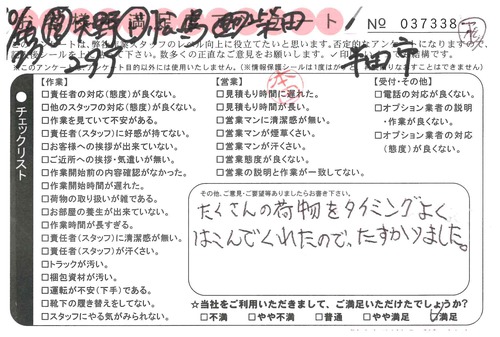 満 ート
№ 037338
ートは、弊社作業スタッフのレベル向上に役立てたいと思います。否定的なアンケートになりますので、
下さい。数多くの正直なご意見をお願いします。
※このアンケートはアンケート目的以外には使用いたしません。
チェックリスト
【作業】
□責任者の対応(態度)が良くない。
□他のスタッフの対応(態度)が良くない。
□作業を見ていて不安がある。
□責任者(スタッフ)に好感が持てない。
□お客様への挨拶が出来ていない。
□ご近所への挨拶・気遣いが無い。
□作業開始前の内容確認がなかった。
□作業開始時間が遅れた。
□荷物の取り扱いが雑である。
□お部屋の養生が出来ていない。
□作業時間が長すぎる。
□責任者(スタッフ)に清潔感が無い。
□責任者(スタッフ)が汗くさい。
□トラックが汚い。
□梱包資材が汚い。
□運転が不安(下手)である。
□靴下の履き替えをしてない。
□スタッフにやる気がみられない。
【営業】
□見積もり時間に遅れた。
□見積もり時間が長い。
□営業マンに清潔感が無い。
□営業マンが煙草くさい。
□営業マンが汗くさい。
□営業態度が良くない。
□営業の説明と作業が一致してない。
【受付・その他】
□電話の対応が良くない。
□オプション業者の説明
・作業が良くない。
□オプション業者の対応
(態度)が良くない。
その他、ご意見・ご要望等ありましたらお書き下さい。
たくさんの荷物をタイミングよく
はこんでくれたので、たすかりました。
☆当社をご利用いただきまして、ご満足いただけたでしょうか?
□不満 □やや不満 □普通 □やや満足 □満足